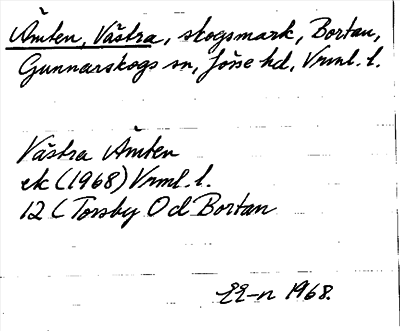 Åmten, Västra, skogsmark, Bortan,
Gunnarskogs sn, Jösse hd, Vrml. l.
Västra Åmten
ek (1968) Vrml. l.
12 C Torsby O d Bortan
1968.